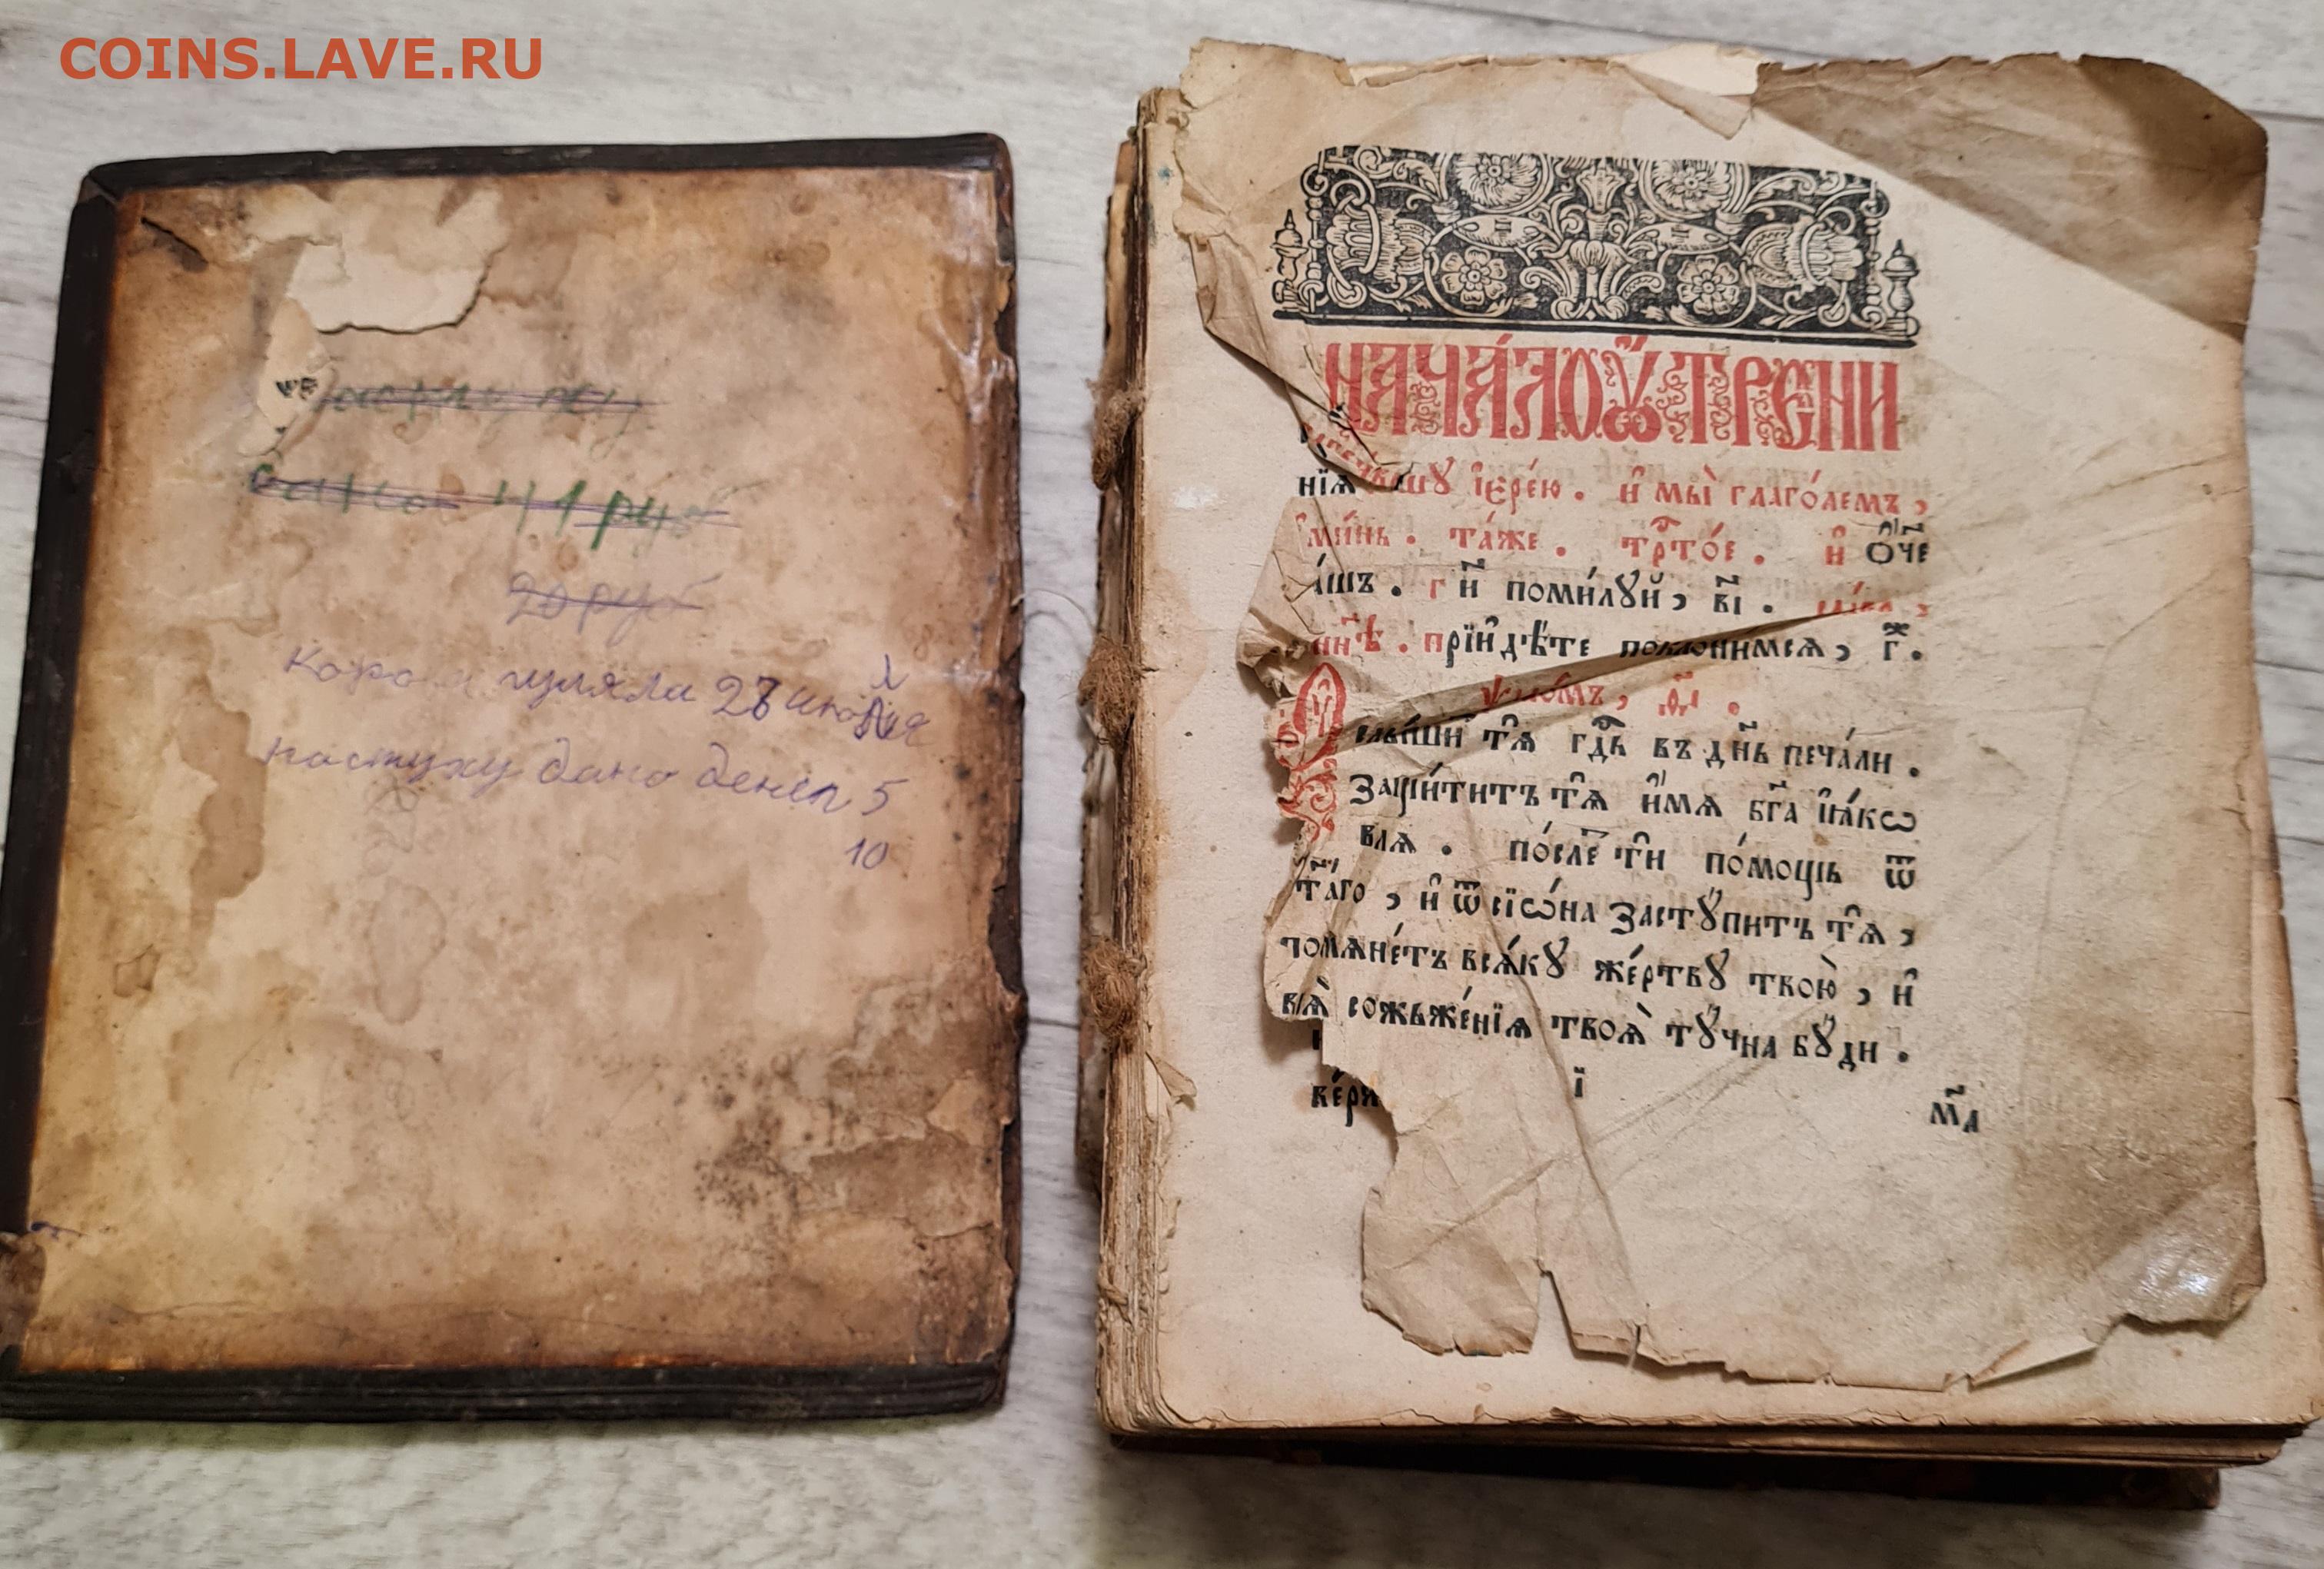 COINS.LAVE.RU
пастуху
дано 41 руб
20 руб
корова гуляла 27 июля
пастуху дано денег 5
10
НАЧА́ЛО ОУ҆́ТРЕНИ
нїѧ вшꙋ і҆ере́ю . и҆ мы̀ глаго́лемъ ,
ми́нь . та́же . трⷭ҇то́е . и҆ Ѻ҆́ч҃е
а́шъ . гд҇и помѝлꙋй , в҃і .
нн҃ѣ . прїидѣ́те поклони́мсѧ , г҃ .
ѱало́мъ , ѳ҃і .
ᲂу҆слы́шитъ тѧ̀ гдⷭ҇ь въ дн҃ь печа́ли .
Защи́титъ тѧ̀ и҆́мѧ бг҃а і҆а́кѡ
влѧ . по́слетъ тѝ по́мощь ѿ
ст҃а́гѡ , и҆ ѿ сїѡ́на застꙋ́питъ тѧ̀ ,
помѧне́тъ всѧ́кꙋ же́ртвꙋ твою̀ , и҆
всѧ̀ сожьже́нїѧ твоѧ̀ тꙋ́чна бꙋ́ди .
ї
мл҃